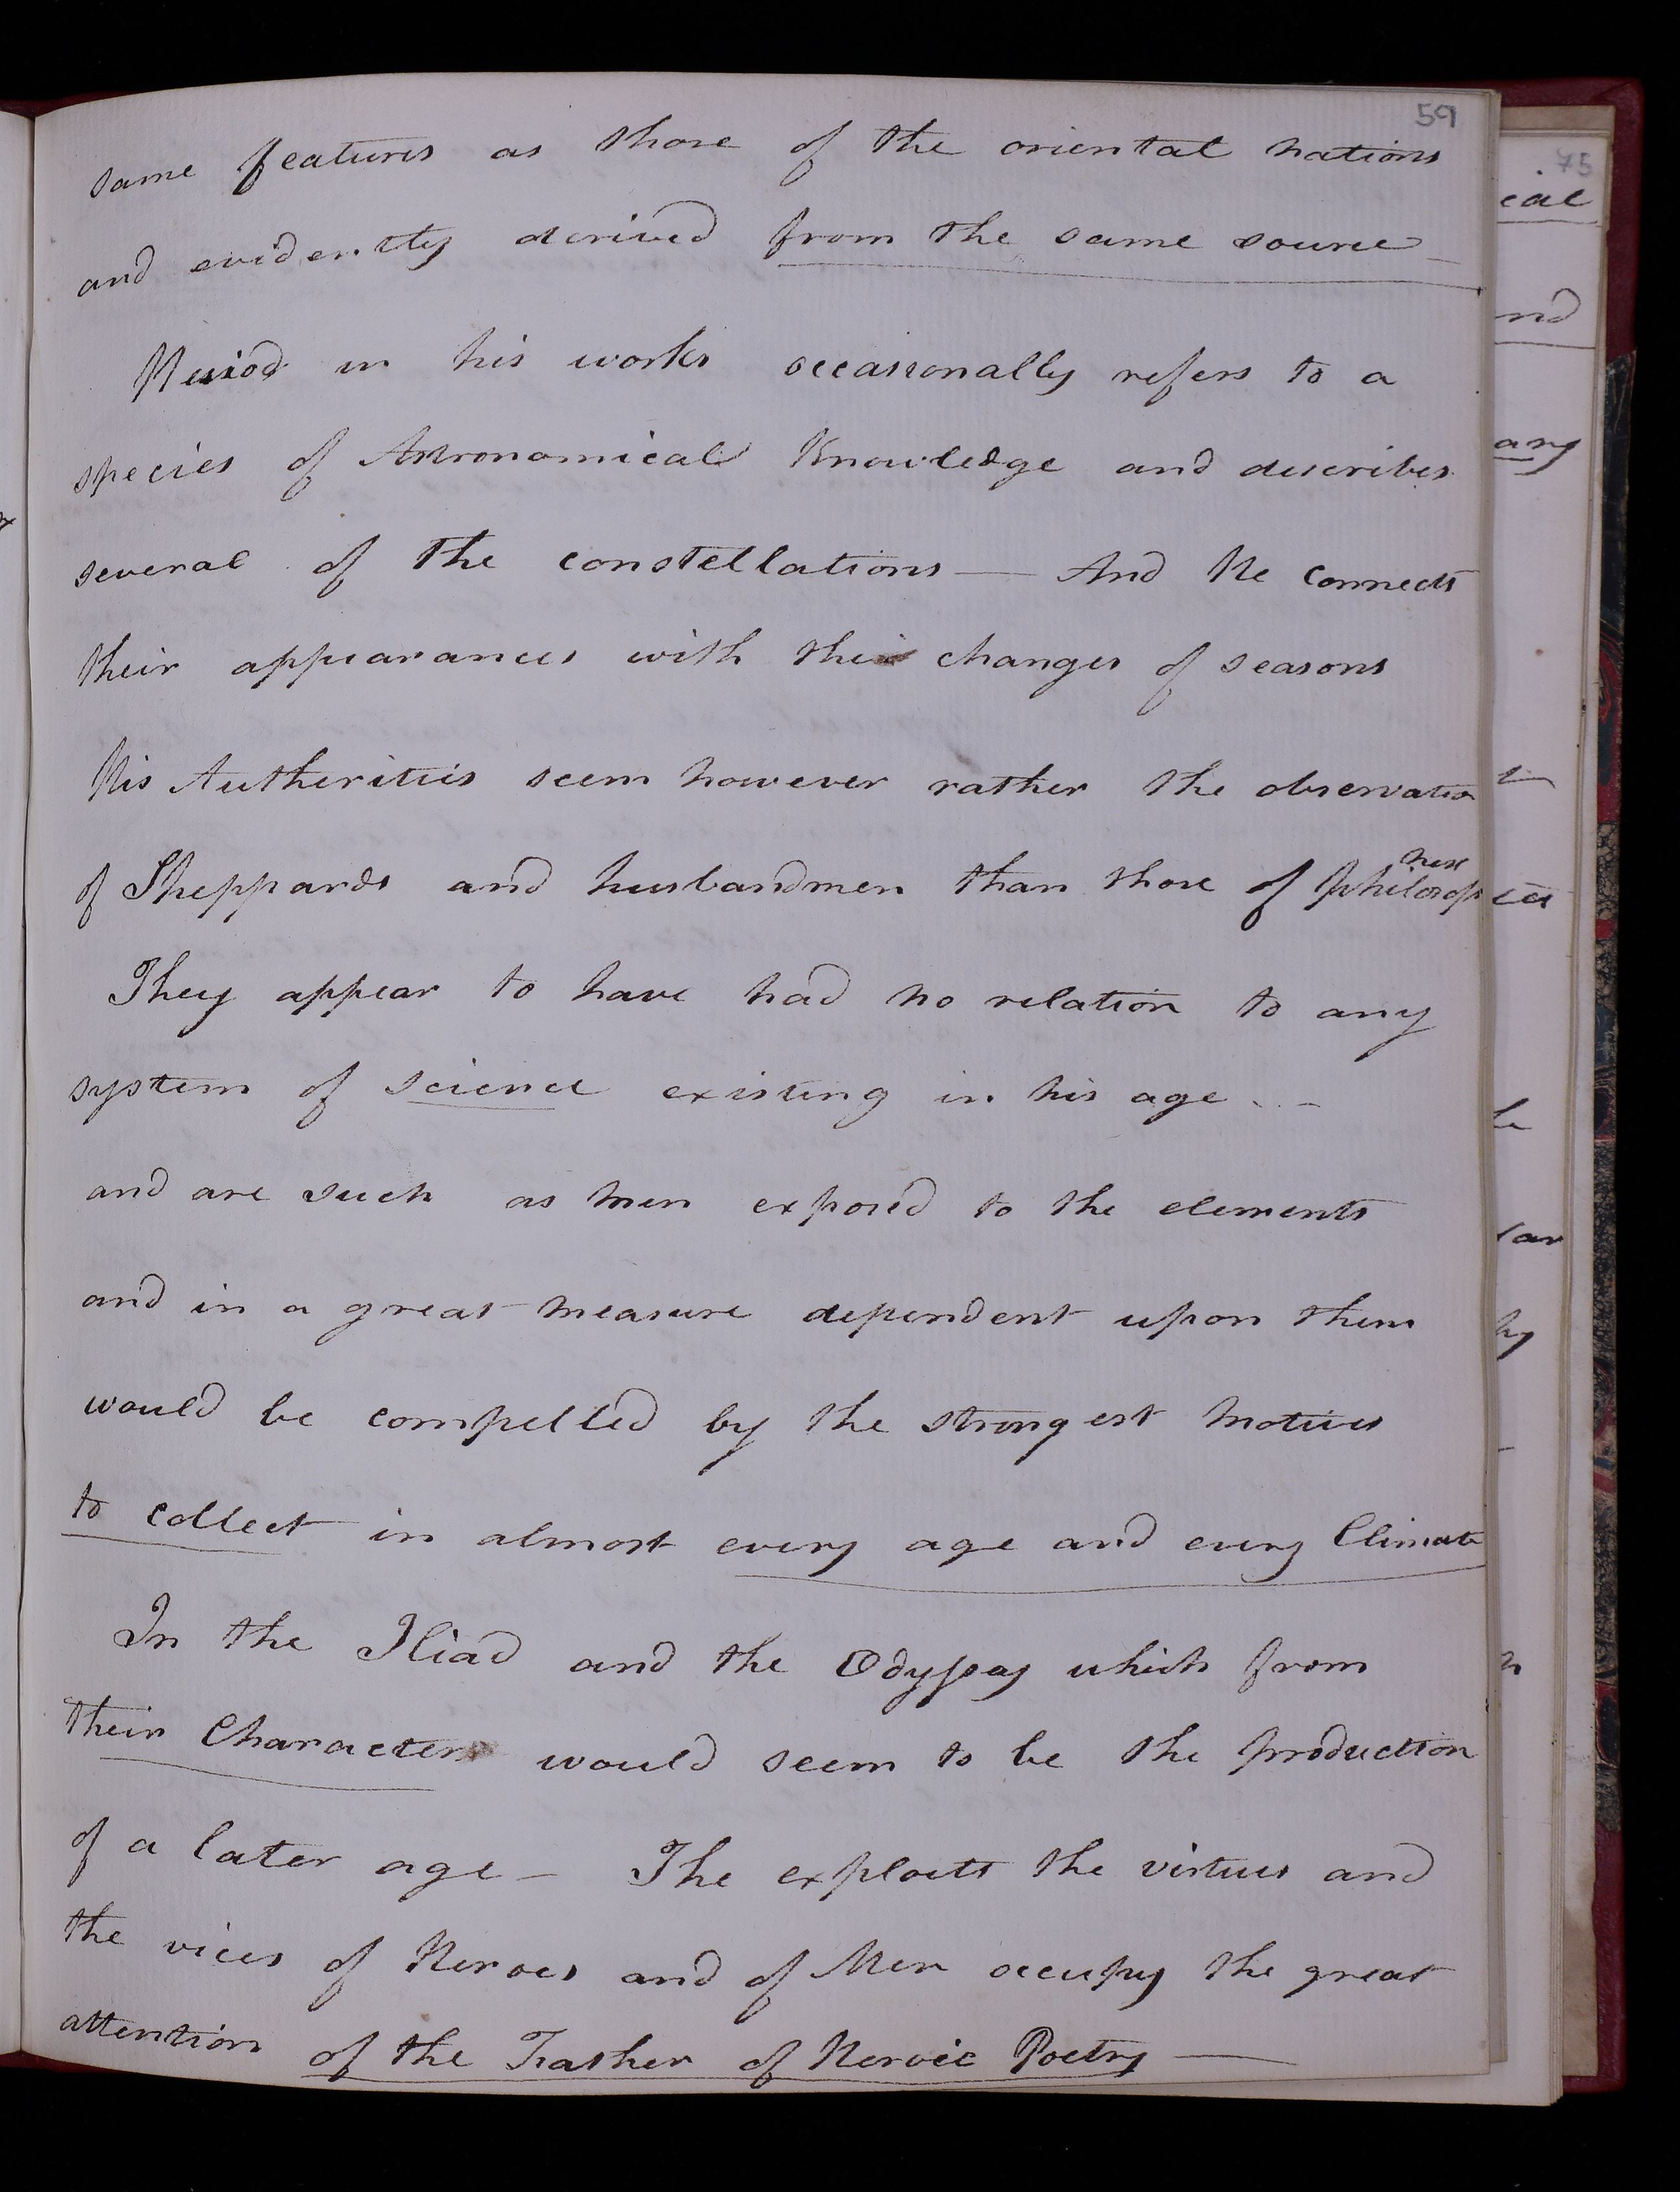 59
same features as those of the oriental nations
and evidently derived from the same source _
Hesiod in his works occasionally refers to a
species of Astronomical Knowledge and describes
several of the constellations — And He connects
their appearances with the changes of seasons
His Autherities seem however rather the observation
of Sheppards and husbandmen than those of philosophers
They appear to have had no relation to any
system of science existing in his age . . –
and are such as men exposed to the elements
and in a great measure dependent upon them
would be compelled by the strongest motives
to collect in almost every age and every Climate
In the Iliad and the Odyssey which from
their Character would seem to be the production
of a later age – The exploits the virtues and
the vices of Heroes and of Men occupy the great
attention of the Father of Heroic Poetry —
75